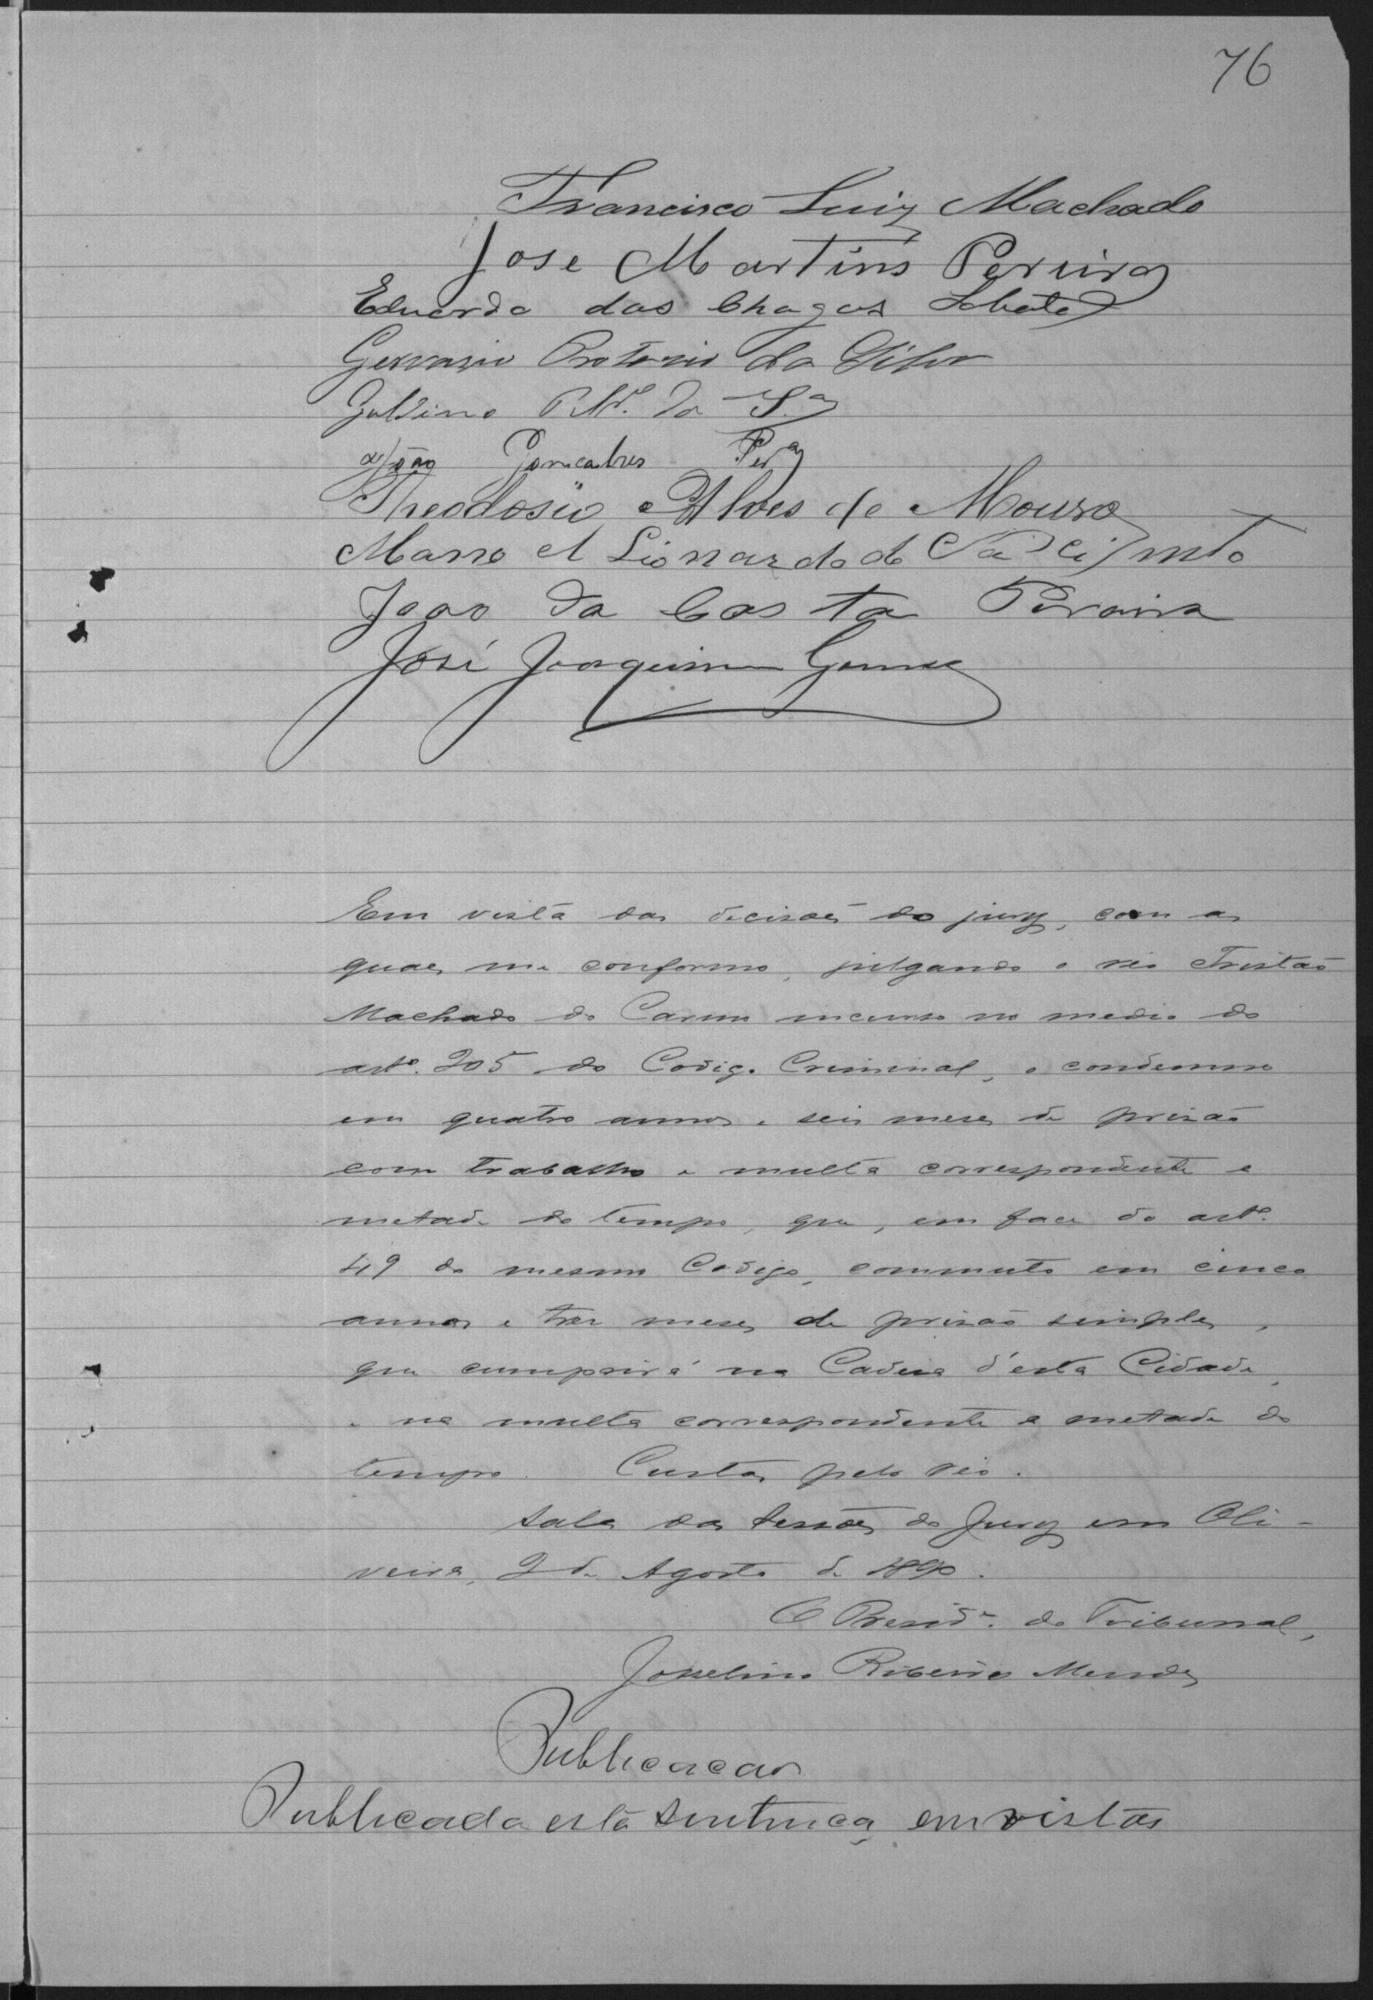 76
Francisco Luiz Machado
Jose Martins Pereira
Eduardo das Chagas Lobato
Gervazio Protazio da Silva
Galdino da S.a
João Goncalves Per.a
Theodosio Alves de Moura
Manoel Lionardo do Nascimto
Joao da Costa Peraira
José Joaquim Gomes
Em vista das decisões do jury, com as
quaes me conformo, julgando o réo Tristão
Machado do Carmo incurso no medio do
art.º 205 do Codigo Criminal, o condemno
em quatro annos e seis meses de prisão
com trabalho e multa correspondente a
metade do tempo, que, em face do art.º
49 do mesmo Codigo, commuto em cinco
annos e tres meses de prisão simples,
que cumprirá na Cadeia d'esta Cidade,
e na multa correspondente a metade do
tempo. Custas pelo réo.
Sala das Sessões do Jury em Oli-
veira, 2 de Agosto de 1890.
O Presid.e do Tribunal,
Josselino Ribeiro Mendes
Publicacao
Publicada esta sentença em vistas